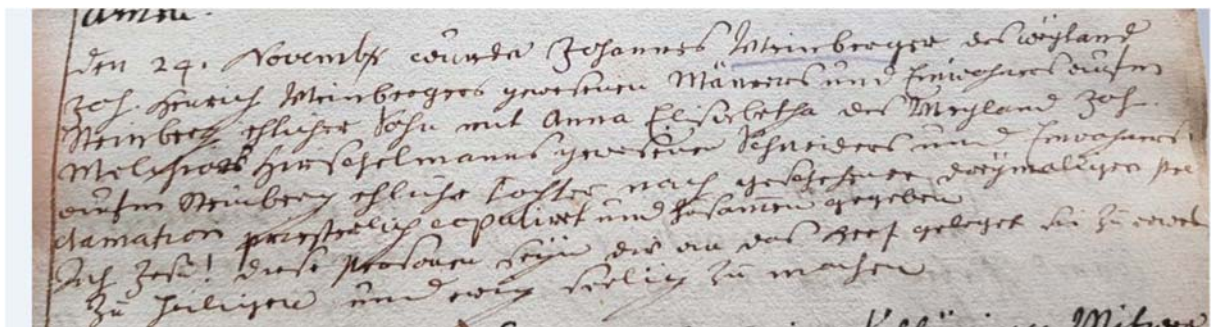 Amen.
Den 24. Novembr wurde Johannes Weinberger des weyland
Joh. Henrich Weinbergers gewesenen Mäurers und Einwohners aufm
Steinberg ehlicher Sohn mit Anna Elisabetha des Weyland Joh.
Melchiors Hirschelmanns gewesenen Schneiders und Einwohners
aufm Steinberg ehliche Tochter nach geschehener dreymaligen Pro
clamation priesterlich copulirt und zusamen gegeben
Ach Jesu! diese Personen seyn dir an das Hertz geleget sie zu
zu heiligen und ewig seelig zu machen